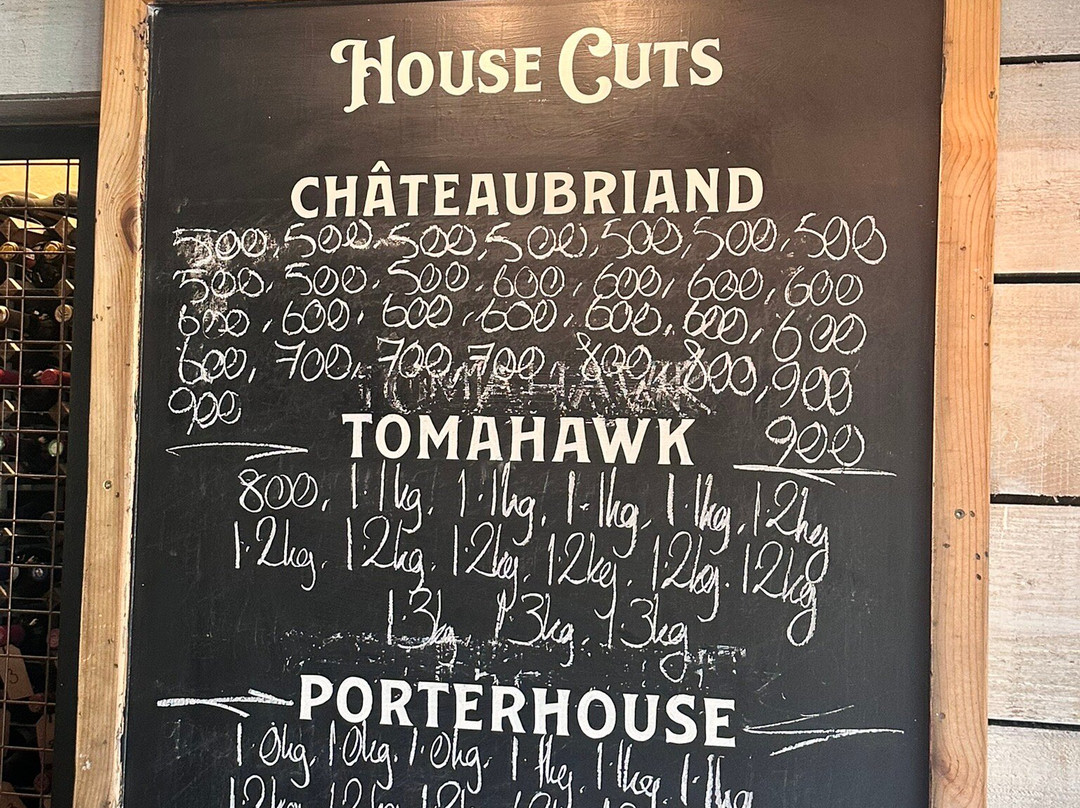 HOUSE CUTS
CHÂTEAUBRIAND
500, 500, 500, 500, 500, 500, 500
500, 500, 500, 600, 600, 600, 600
600, 600, 600, 600, 600, 600, 600
600, 700, 700, 700, 800, 800, 900
900
900
TOMAHAWK
800, 1.1kg, 1.1kg, 1.1kg, 1.1kg, 1.2kg
1.2kg, 1.2kg, 1.2kg, 1.2kg, 1.2kg, 1.2kg
1.3kg, 1.3kg, 1.3kg
PORTERHOUSE
1.0kg, 1.0kg, 1.0kg, 1.1kg, 1.1kg, 1.1kg
1.2kg, 1.2kg, 1.2kg